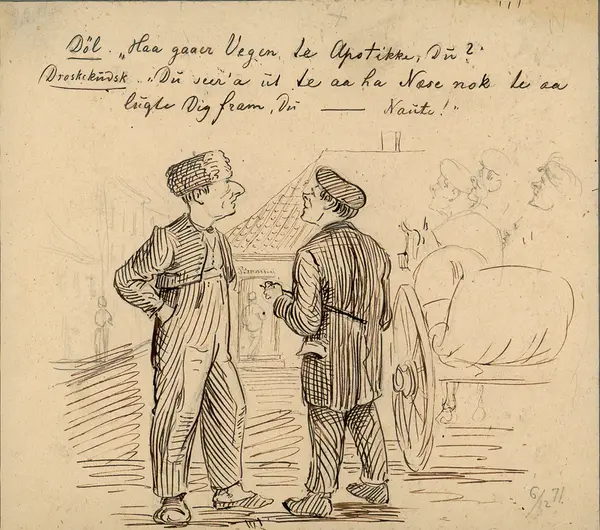 Döl. „Haa gaaer Vegen te Apotikke, Du?"
Droskekudsk. „Du seer'a üt te aa ha Næse nok te aa
lugte Dig fram, Du — Naute!"
6/12 71